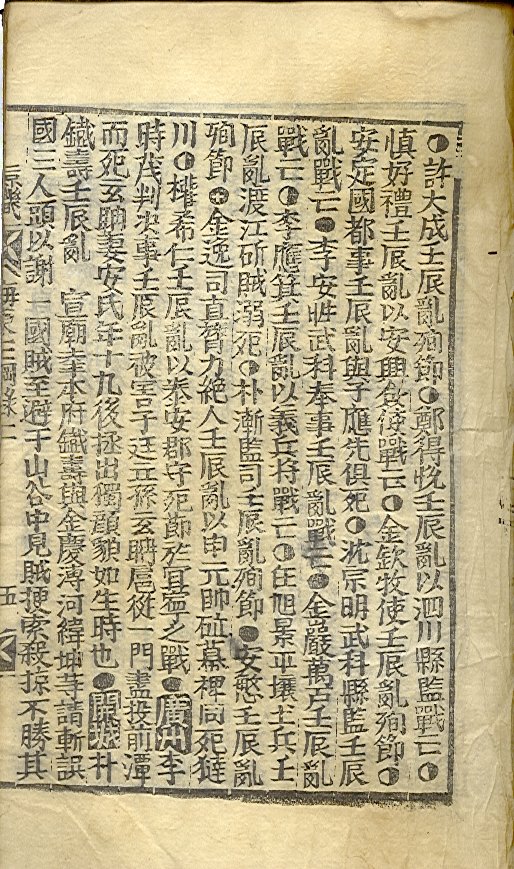 ◐許大成壬辰亂殉節◐鄭得悅壬辰亂以泗川縣監戰亡◐
愼好禮壬辰亂以安興僉使戰亡◐金欽牧使壬辰亂殉節◐
安定國都事壬辰亂與子應先俱死◐沈宗明武科縣監壬辰
亂戰亡●李安性武科奉事壬辰亂戰亡●金嚴萬戶壬辰亂
戰亡◐李應箕壬辰亂以義兵將戰亡◐任旭景平壤士兵壬
辰亂渡江斫賊溺死◐朴漸監司壬辰亂殉節●安慜壬辰亂
殉節●金逸司直膂力絶人壬辰亂以申元帥砬幕裨同死㺚
川◐權希仁壬辰亂以泰安郡守死節於宜藍之戰●廣州李
時茂判決事壬辰亂被害子廷立孫玄明扈從一門盡投前潭
而死玄明妻安氏年十九後拯出獨顔貌如生時也●開城朴
鐵壽壬辰亂 宣廟幸本府鐵壽與金慶溥河緯坤等請斬誤
國三人頭以謝一國賊至避于山谷中見賊搜索殺掠不勝其
五